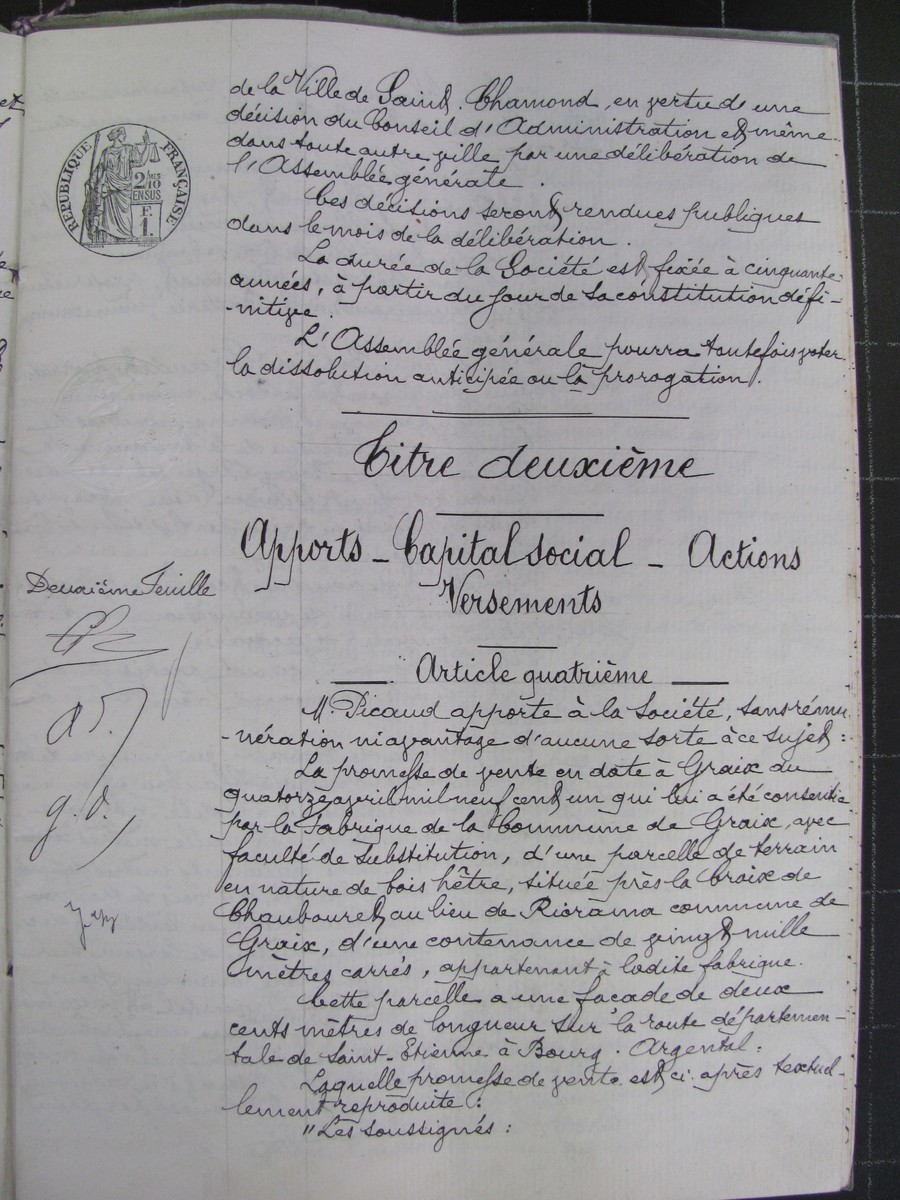 de la Ville de Saint-Chamond, en vertu d'une
décision du Conseil d'Administration et même
dans toute autre ville par une délibération de
l'Assemblée générale.
Ces décisions seront rendues publiques
dans le mois de la délibération.
La durée de la Société est fixée à cinquante
années, à partir du jour de sa constitution défi-
-nitive.
L'Assemblée générale pourra toutefois voter
la dissolution anticipée ou la prorogation.
Titre deuxième
Apports - Capital social - Actions
Versements
Article quatrième
M. Picaud apporte à la Société, sans rému
-nération ni avantage d'aucune sorte à ce sujet :
La promesse de vente en date à Graix du
quatorze avril mil neuf cent un qui lui a été consentie
par la Fabrique de la Commune de Graix, avec
faculté de substitution, d'une parcelle de terrain
en nature de bois hêtre, située près la Croix de
Chaubouret, au lieu de Riorama commune de
Graix, d'une contenance de vingt mille
mètres carrés, appartenant à ladite fabrique.
Cette parcelle a une façade de deux
cents mètres de longueur sur la route départemen-
tale de Saint-Etienne à Bourg-Argental.
Laquelle promesse de vente est ci-après textuel-
lement reproduite :
"Les soussignés :
RÉPUBLIQUE FRANÇAISE
2/10
EN SUS
F.
1.
Deuxième Feuille
g. d.